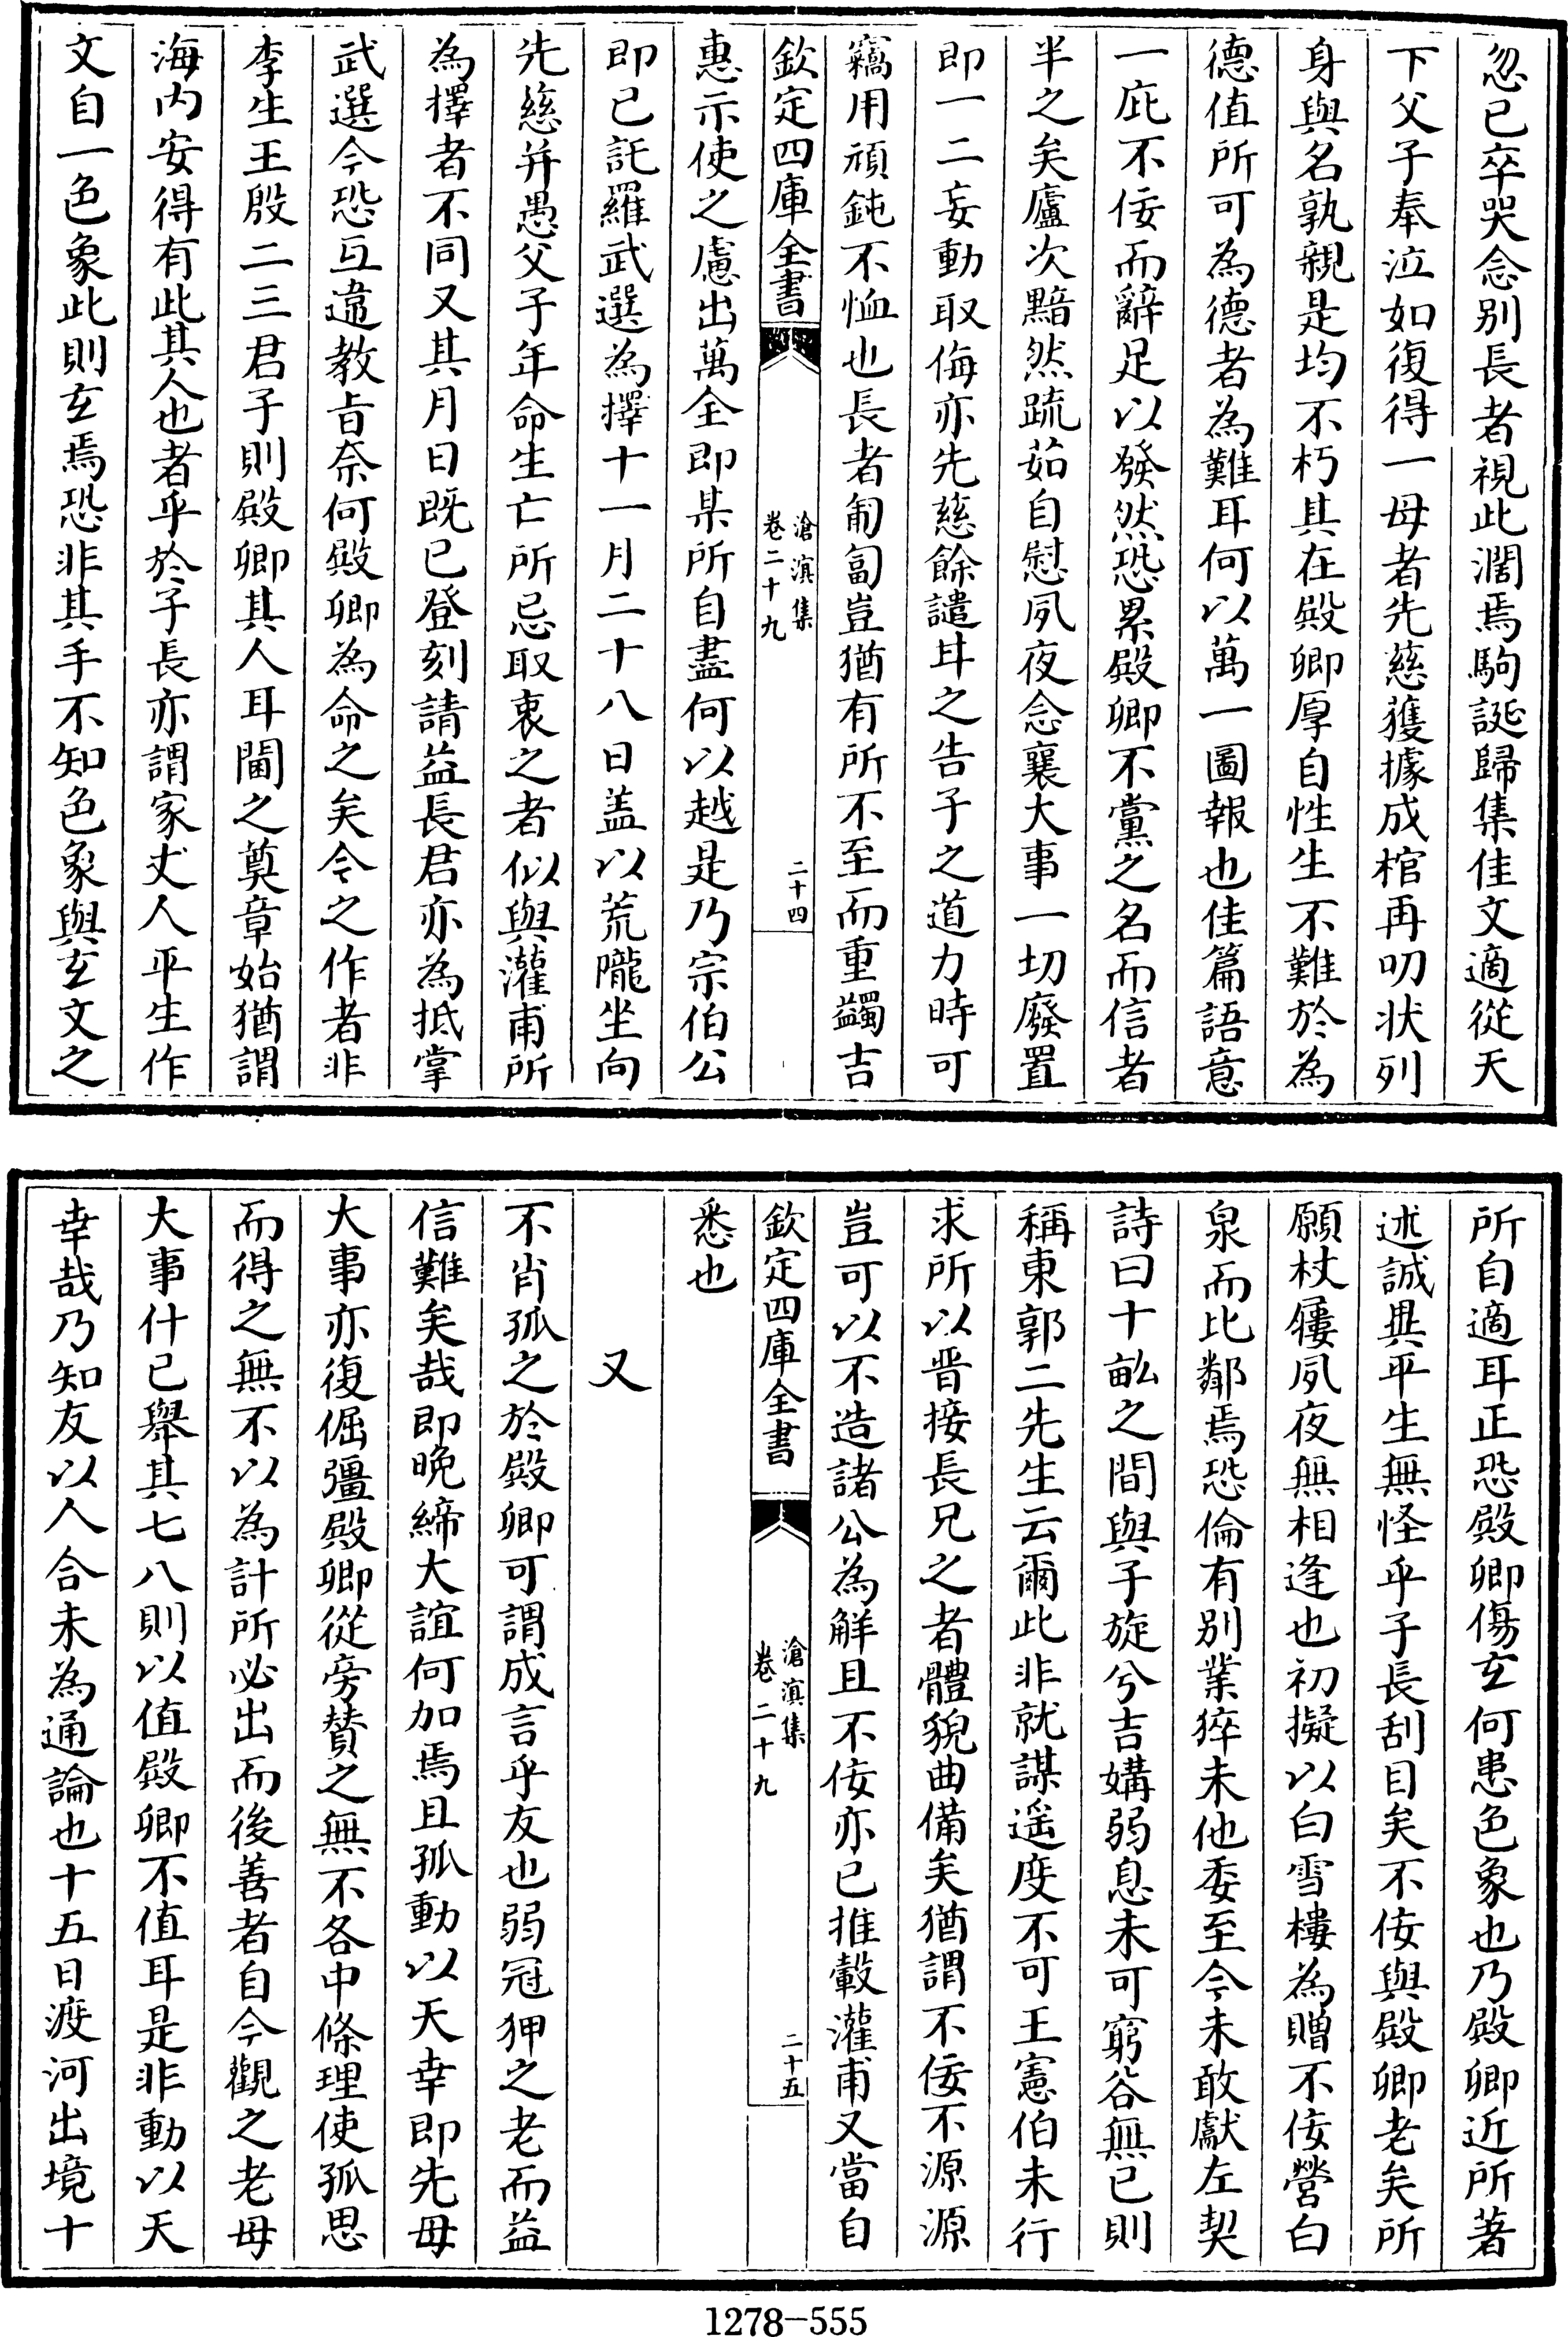 忽已卒哭念别長者視此濶焉駒誕歸集佳文適從天
下父子奉泣如復得一母者先慈獲據成棺再叨状列
身與名孰親是均不朽其在殿卿厚自性生不難於為
德值所可為德者為難耳何以萬一圖報也佳篇語意
一庇不佞而辭足以發然恐累殿卿不黨之名而信者
半之矣廬次黯然疏茹自慰夙夜念襄大事一切廢置
即一二妄動取侮亦先慈餘譴耳之告子之道力時可
竊用頑鈍不恤也長者匍匐豈猶有所不至而重蠲吉
欽定四庫全書
滄溟集
卷二十九
二十四
惠示使之慮出萬全即某所自盡何以越是乃宗伯公
即已託羅武選為擇十一月二十八日盖以荒隴坐向
先慈并愚父子年命生亡所忌取衷之者似與灌甫所
為擇者不同又其月日既已登刻請益長君亦為抵掌
武選今恐互違教㫖奈何殿卿為命之矣今之作者非
李生王殷二三君子則殿卿其人耳閫之奠章始猶謂
海内安得有此其人也者乎於子長亦謂家丈人平生作
文自一色象此則玄焉恐非其手不知色象與玄文之
所自適耳正恐殿卿傷玄何患色象也乃殿卿近所著
述誠異平生無怪乎子長刮目矣不佞與殿卿老矣所
願杖屨夙夜無相逢也初擬以白雪樓為贈不佞營白
泉而比鄰焉恐倫有别業猝未他委至今未敢獻左契
詩曰十畝之間與子旋兮吉媾弱息未可窮谷無已則
稱東郭二先生云爾此非就謀遥度不可王憲伯未行
求所以晋接長兄之者體貌曲備矣猶謂不佞不源源
豈可以不造諸公為解且不佞亦已推轂灌甫又當自
欽定四庫全書
滄溟集
卷二十九
二十五
悉也
又
不肖孤之於殿卿可謂成言乎友也弱冠狎之老而益
信難矣哉即晚締大誼何加焉且孤動以天幸即先母
大事亦復倔彊殿卿從旁賛之無不各中條理使孤思
而得之無不以為計所必出而後善者自今觀之老母
大事什已舉其七八則以值殿卿不值耳是非動以天
幸哉乃知友以人合未為通論也十五日渡河出境十
1278-555